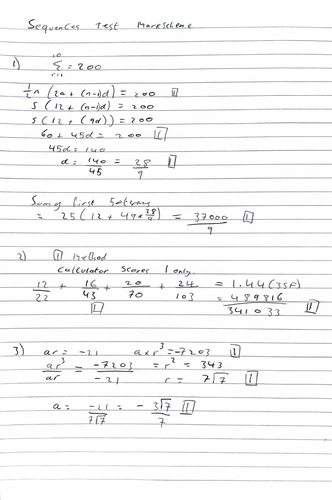 Sequences Test Markscheme
1) 10 Σ r=1 = 200
½n (2a + (n-1)d) = 200 [1]
5 (12 + (n-1)d) = 200
5 (12 + (9d)) = 200
60 + 45d = 200 [1]
45d = 140
d = 140/45 = 28/9 [1]
Sum of first 50 terms
= 25 (12 + 49 × 28/9) = 37000/9 [1]
2) [1] Method
Calculator scores 1 only.
12/22 + 16/43 + 20/70 + 24/103 = 1.44 (3SF)
[1] = 489816/341033 [1]
3) ar = -21 a×r³ = -7203 [1]
ar³/ar = -7203/-21 = r² = 343
r = 7√7 [1]
a = -21/7√7 = -3√7/7 [1]